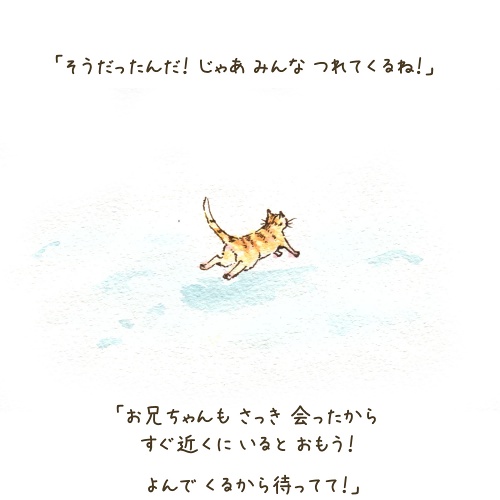 「そうだったんだ! じゃあ みんな つれてくるね!」
「お兄ちゃんも さっき 会ったから
すぐ近くに いると おもう!
よんで くるから待ってて!」